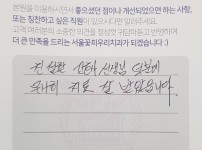 본원을 이용하시면서 좋으셨던 점이나 개선되었으면 하는 사항,
또는 칭찬하고 싶은 직원이 있으시다면 알려주세요.
고객 여러분의 소중한 의견을 정성껏 귀담아듣고 반영하여
더 큰 만족을 드리는 서울꽃피우리치과가 되겠습니다 :)
친절한 선생님 덕분에
치료 잘 받았습니다